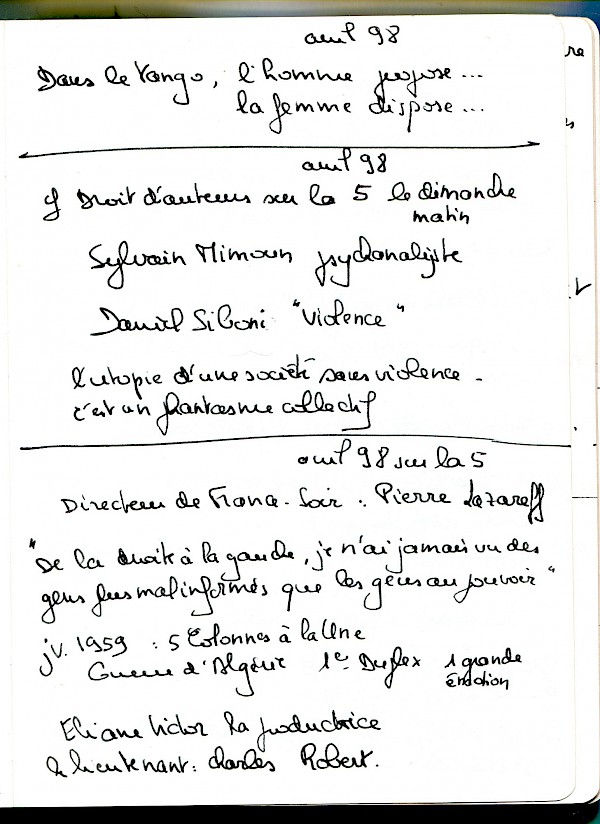 avril 98
Dans le Tango, l'homme propose...
la femme dispose...
avril 98
cf Droit d'auteurs sur la 5 le dimanche
matin
Sylvain Mimoun psychanalyste
Daniel Siboni "Violence"
l'utopie d'une société sans violence -
c'est un fantasme collectif
avril 98 sur la 5
Directeur de France-Soir : Pierre Lazareff
"De la droite à la gauche, je n'ai jamais vu des
gens plus mal informés que les gens au pouvoir"
jv. 1959 : 5 Colonnes à la Une
Guerre d'Algérie 1er Duplex 1 grande
émotion
Eliane Victor la productrice
le lieutenant : Charles Robert.
re
s